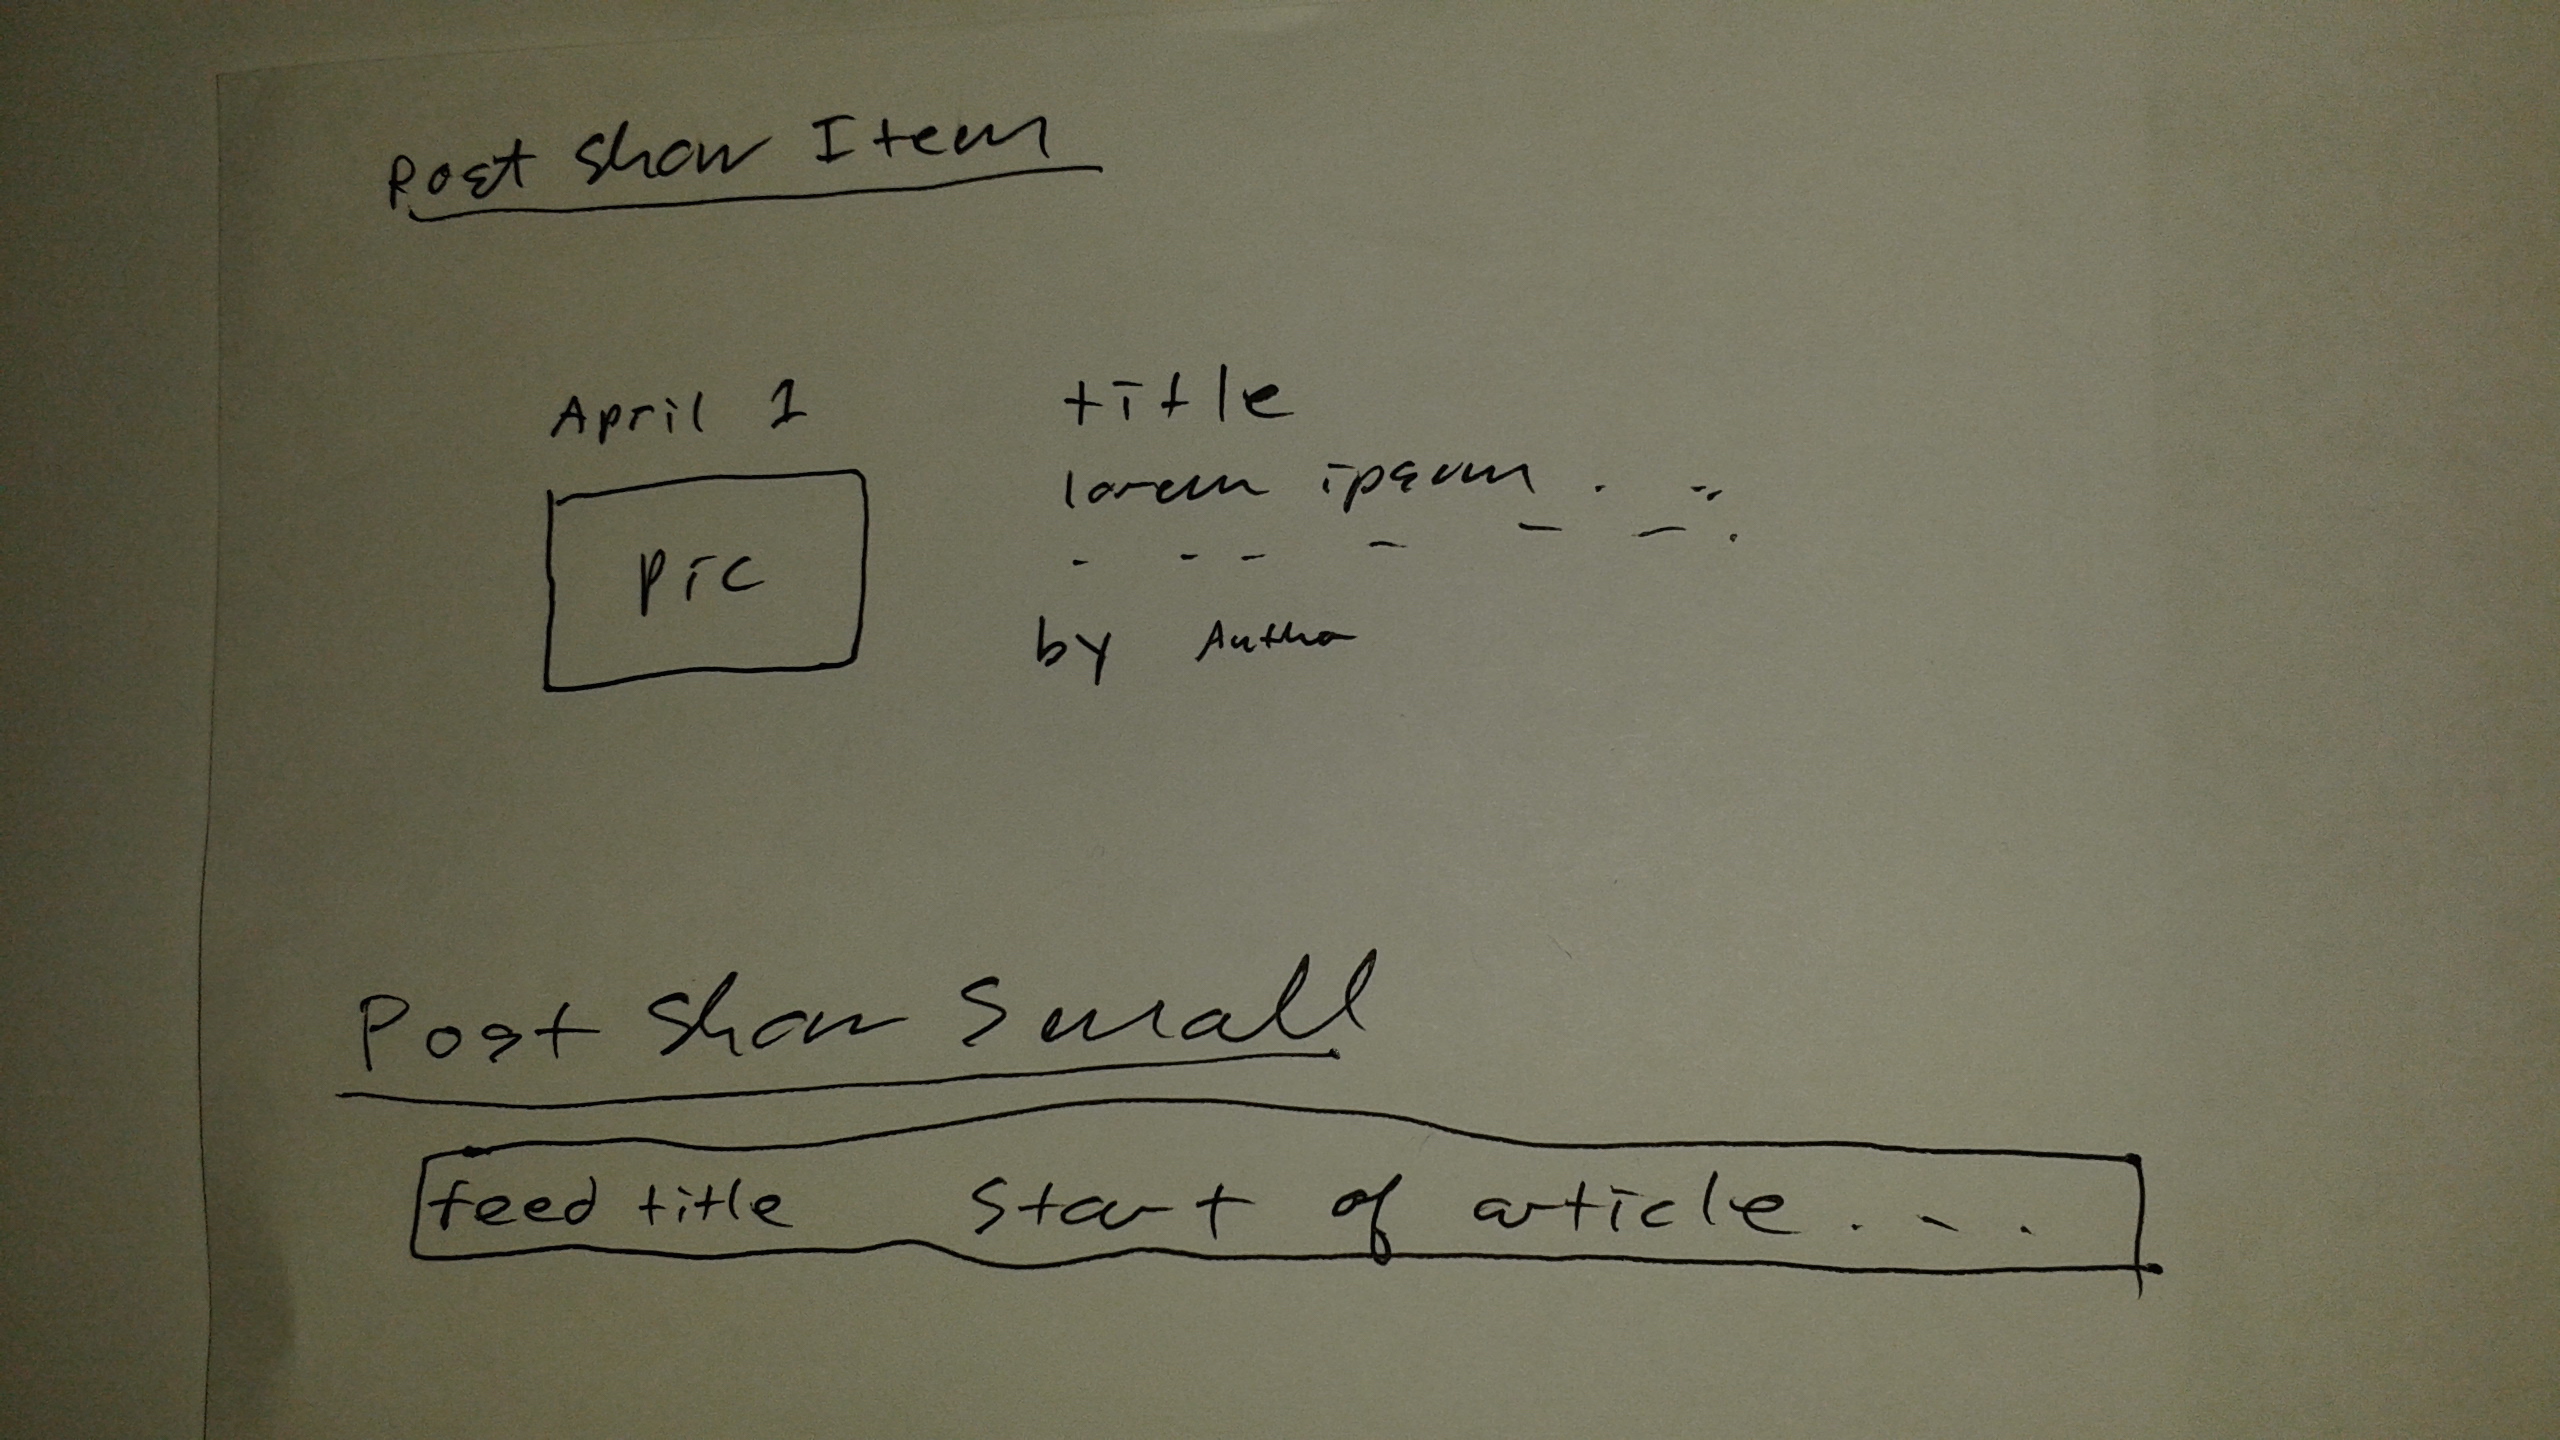 Post Show Item
April 1
pic
title
lorem ipsum . - .
- - - - - - .
by Author
Post Show Small
feed title Start of article . . .